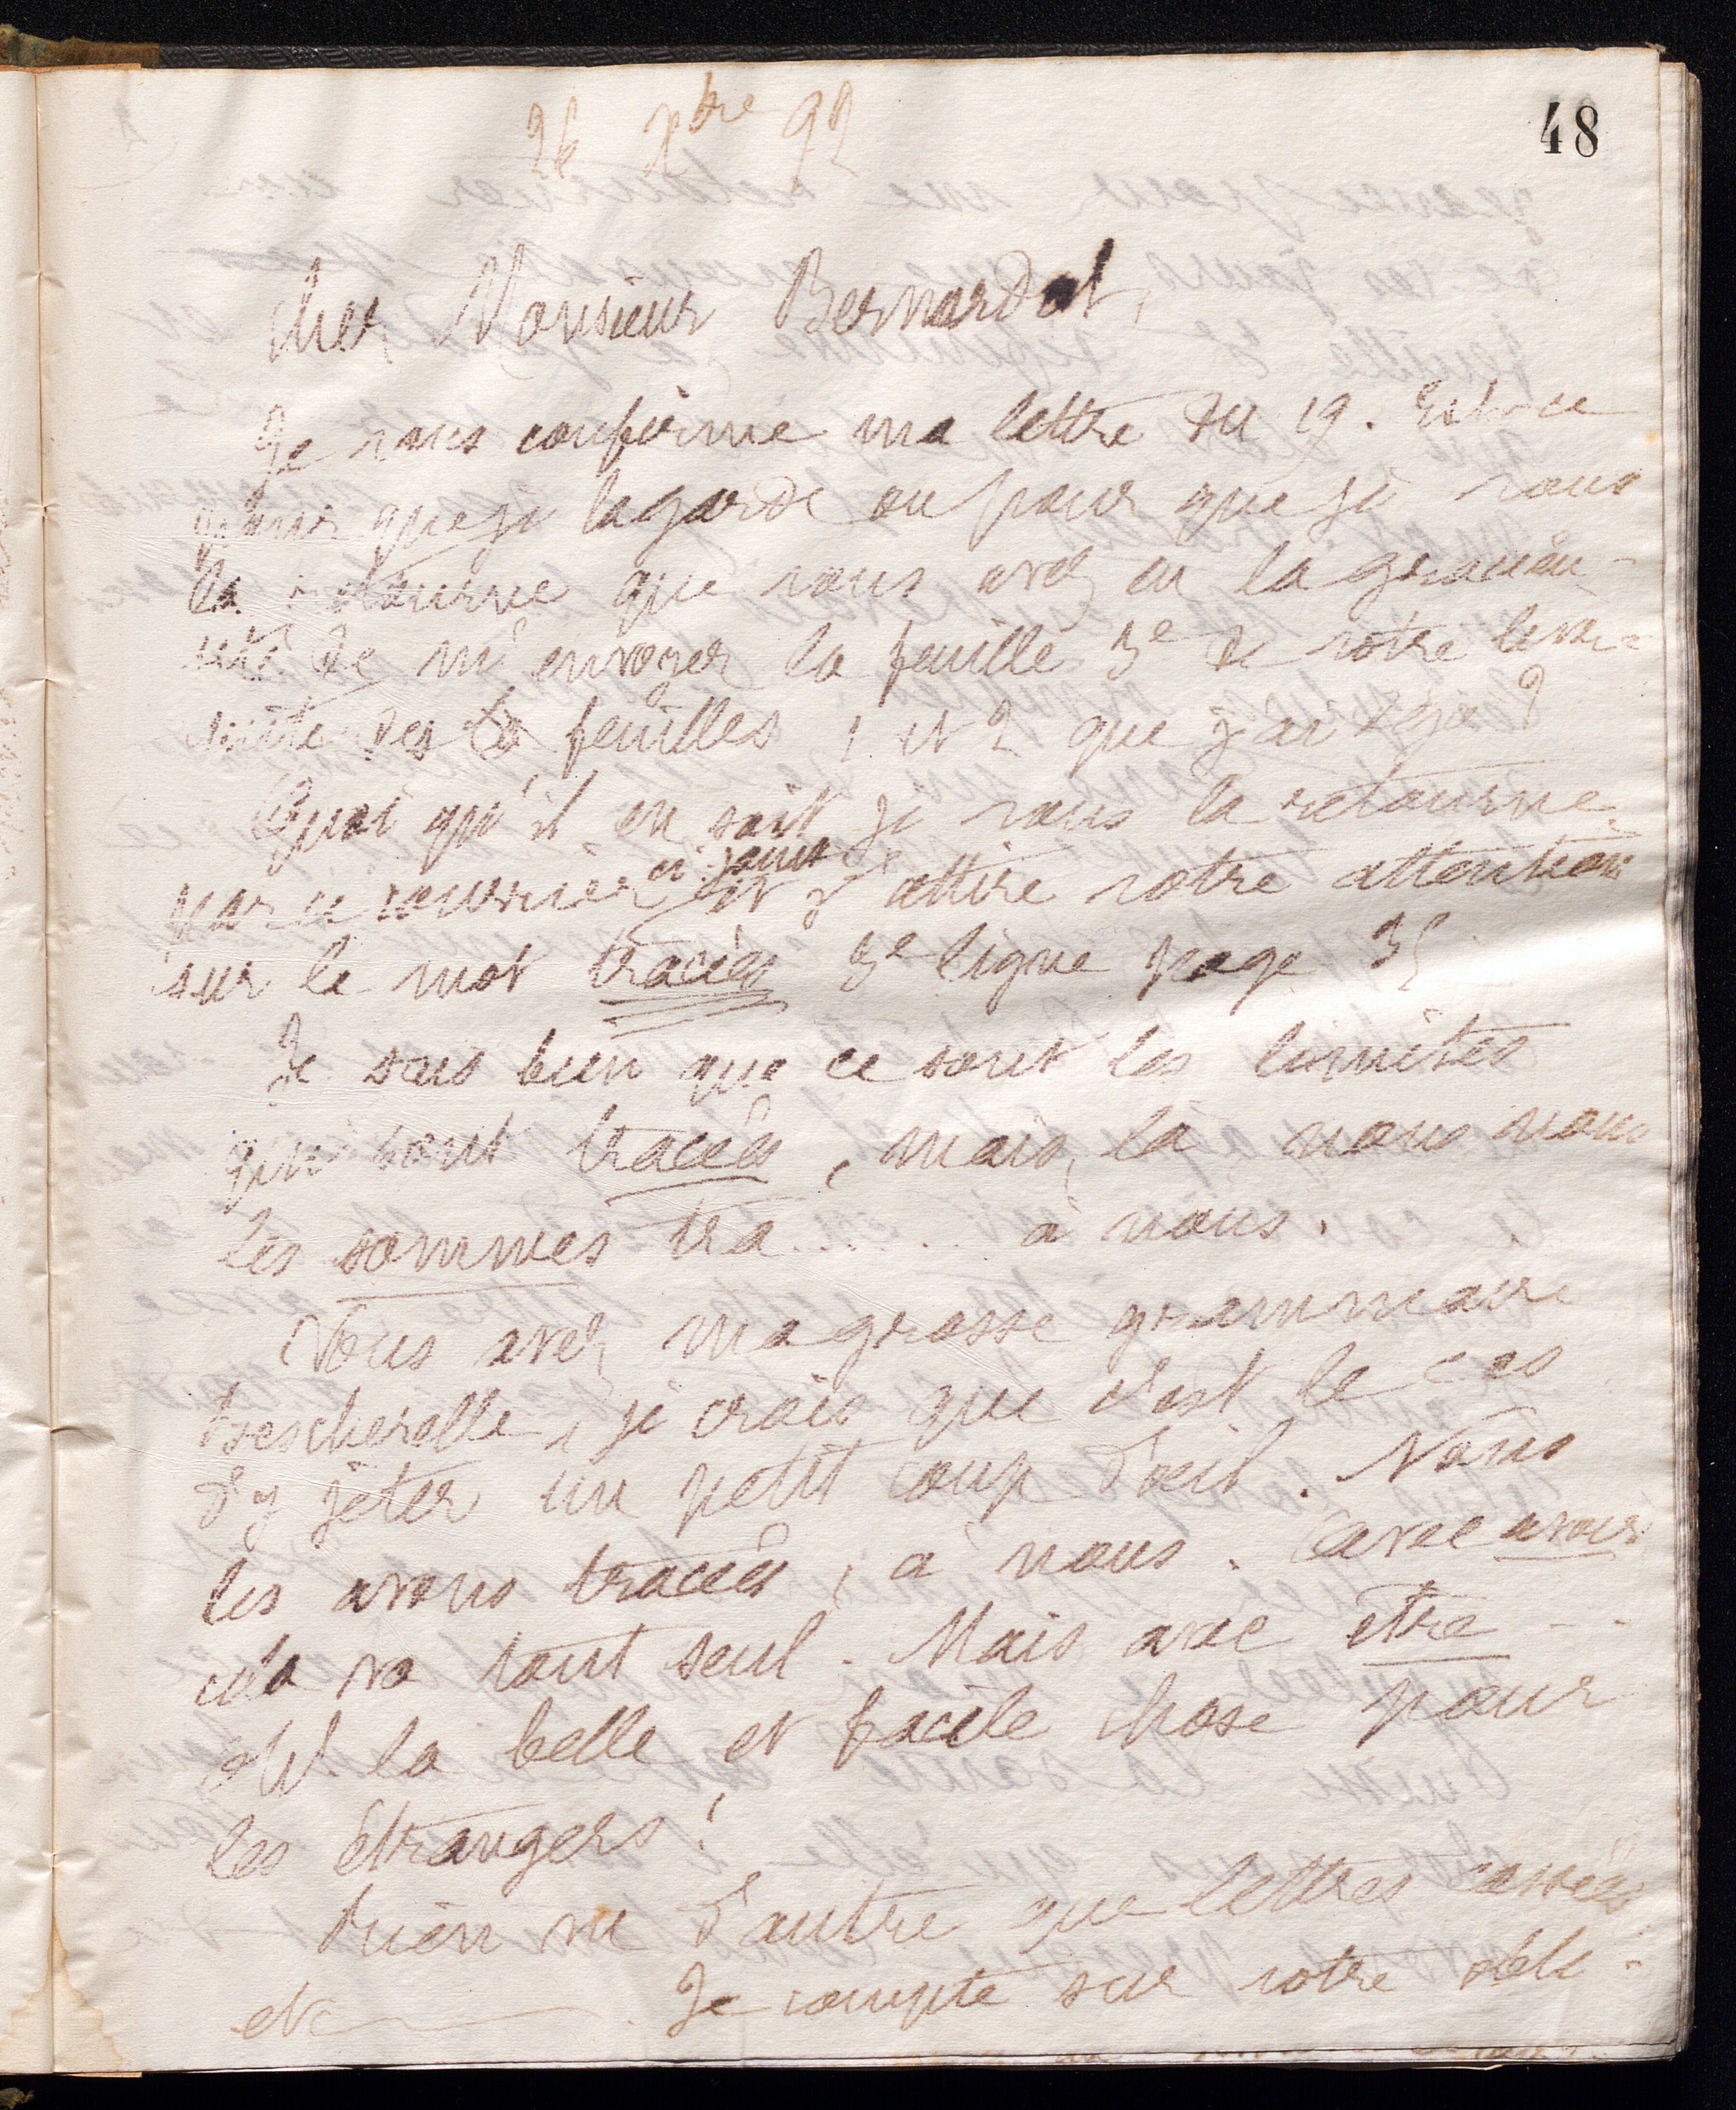 48
26 Xbre 92
Cher Monsieur Bernardot,
Je vous confirme ma lettre du 19. Est-ce
pour que je la garde ou pour que je vous
la retourne que vous avez eu la gracieu-
seté de m'envoyer la feuille 3e de votre
suite des feuilles 1 et 2 que j'ai déjà ?
Quoi qu'il en soit je vous la retourne
par ce courrier ci joint et j'attire votre attention
sur le mot tracées 3e ligne page 35
Je sais bien que ce sont les limites
qui sont tracées, mais, là, nous nous
les sommes tra........ à nous.
Vous avez ma grosse grammaire
Bescherelle, je crois que c'est le cas
d'y jeter un petit coup d'oeil. Nous
les avons tracées, à nous. avec avoir
cela va tout seul. Mais avec être --
est la belle et facile chose pour
les étrangers !
Rien vu d'autre que lettres cassées
etc. Je compte sur votre obli-